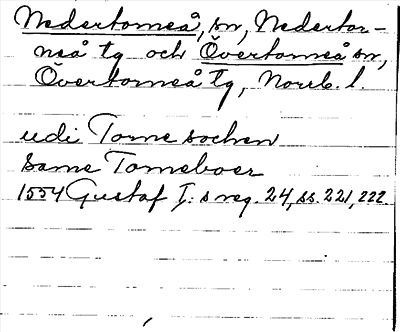 Nedertorneå, sn, Nedertor-
neå tg och Övertorneå sn,
Övertorneå tg, Norrb. l.
udi Torne sochen
same Torneboer
1554 Gustaf I:s reg. 24, ss. 221, 222.